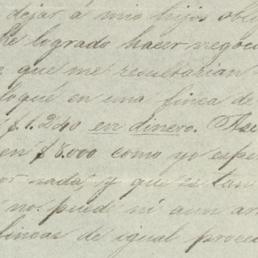 dejar á mis hijos
he logrado hacer negoc
que me resultarian
loqué en una finca de
$1.240 en dinero. Ase
en $8.000 como yo espe
or nada, y que es tan
no pude ni aun
fincas de igual proce